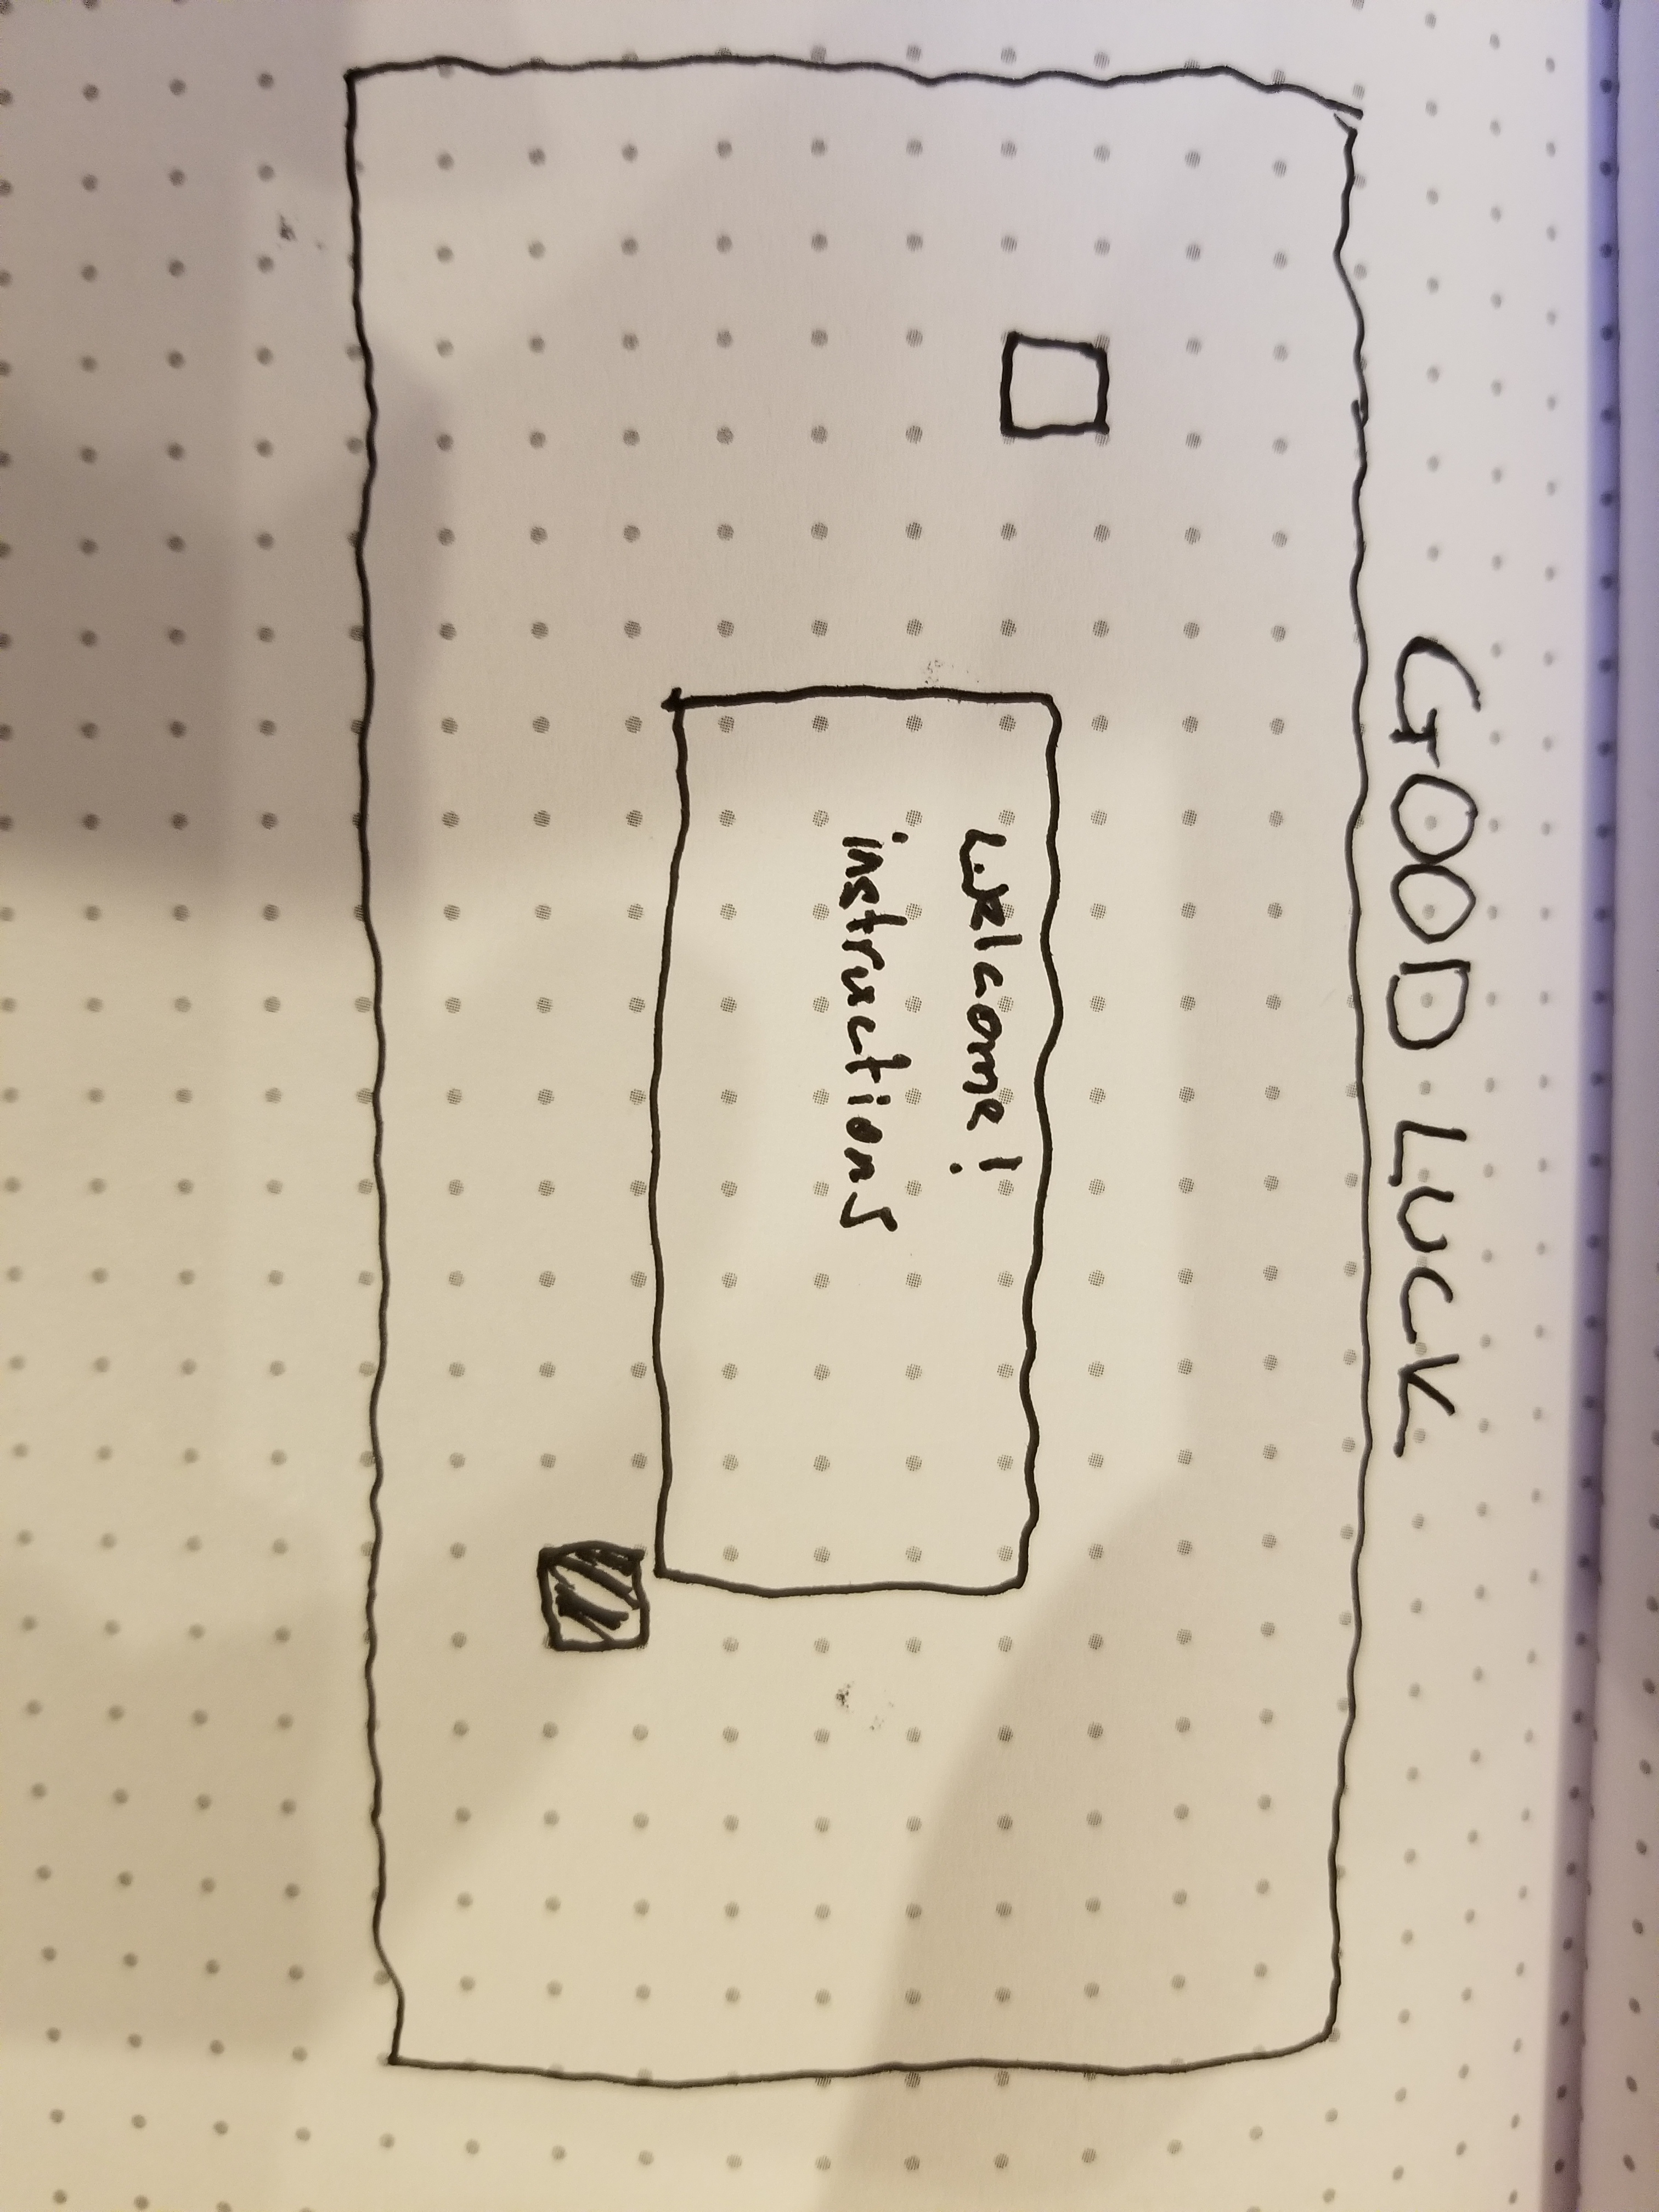 GOOD LUCK
welcome!
instructions